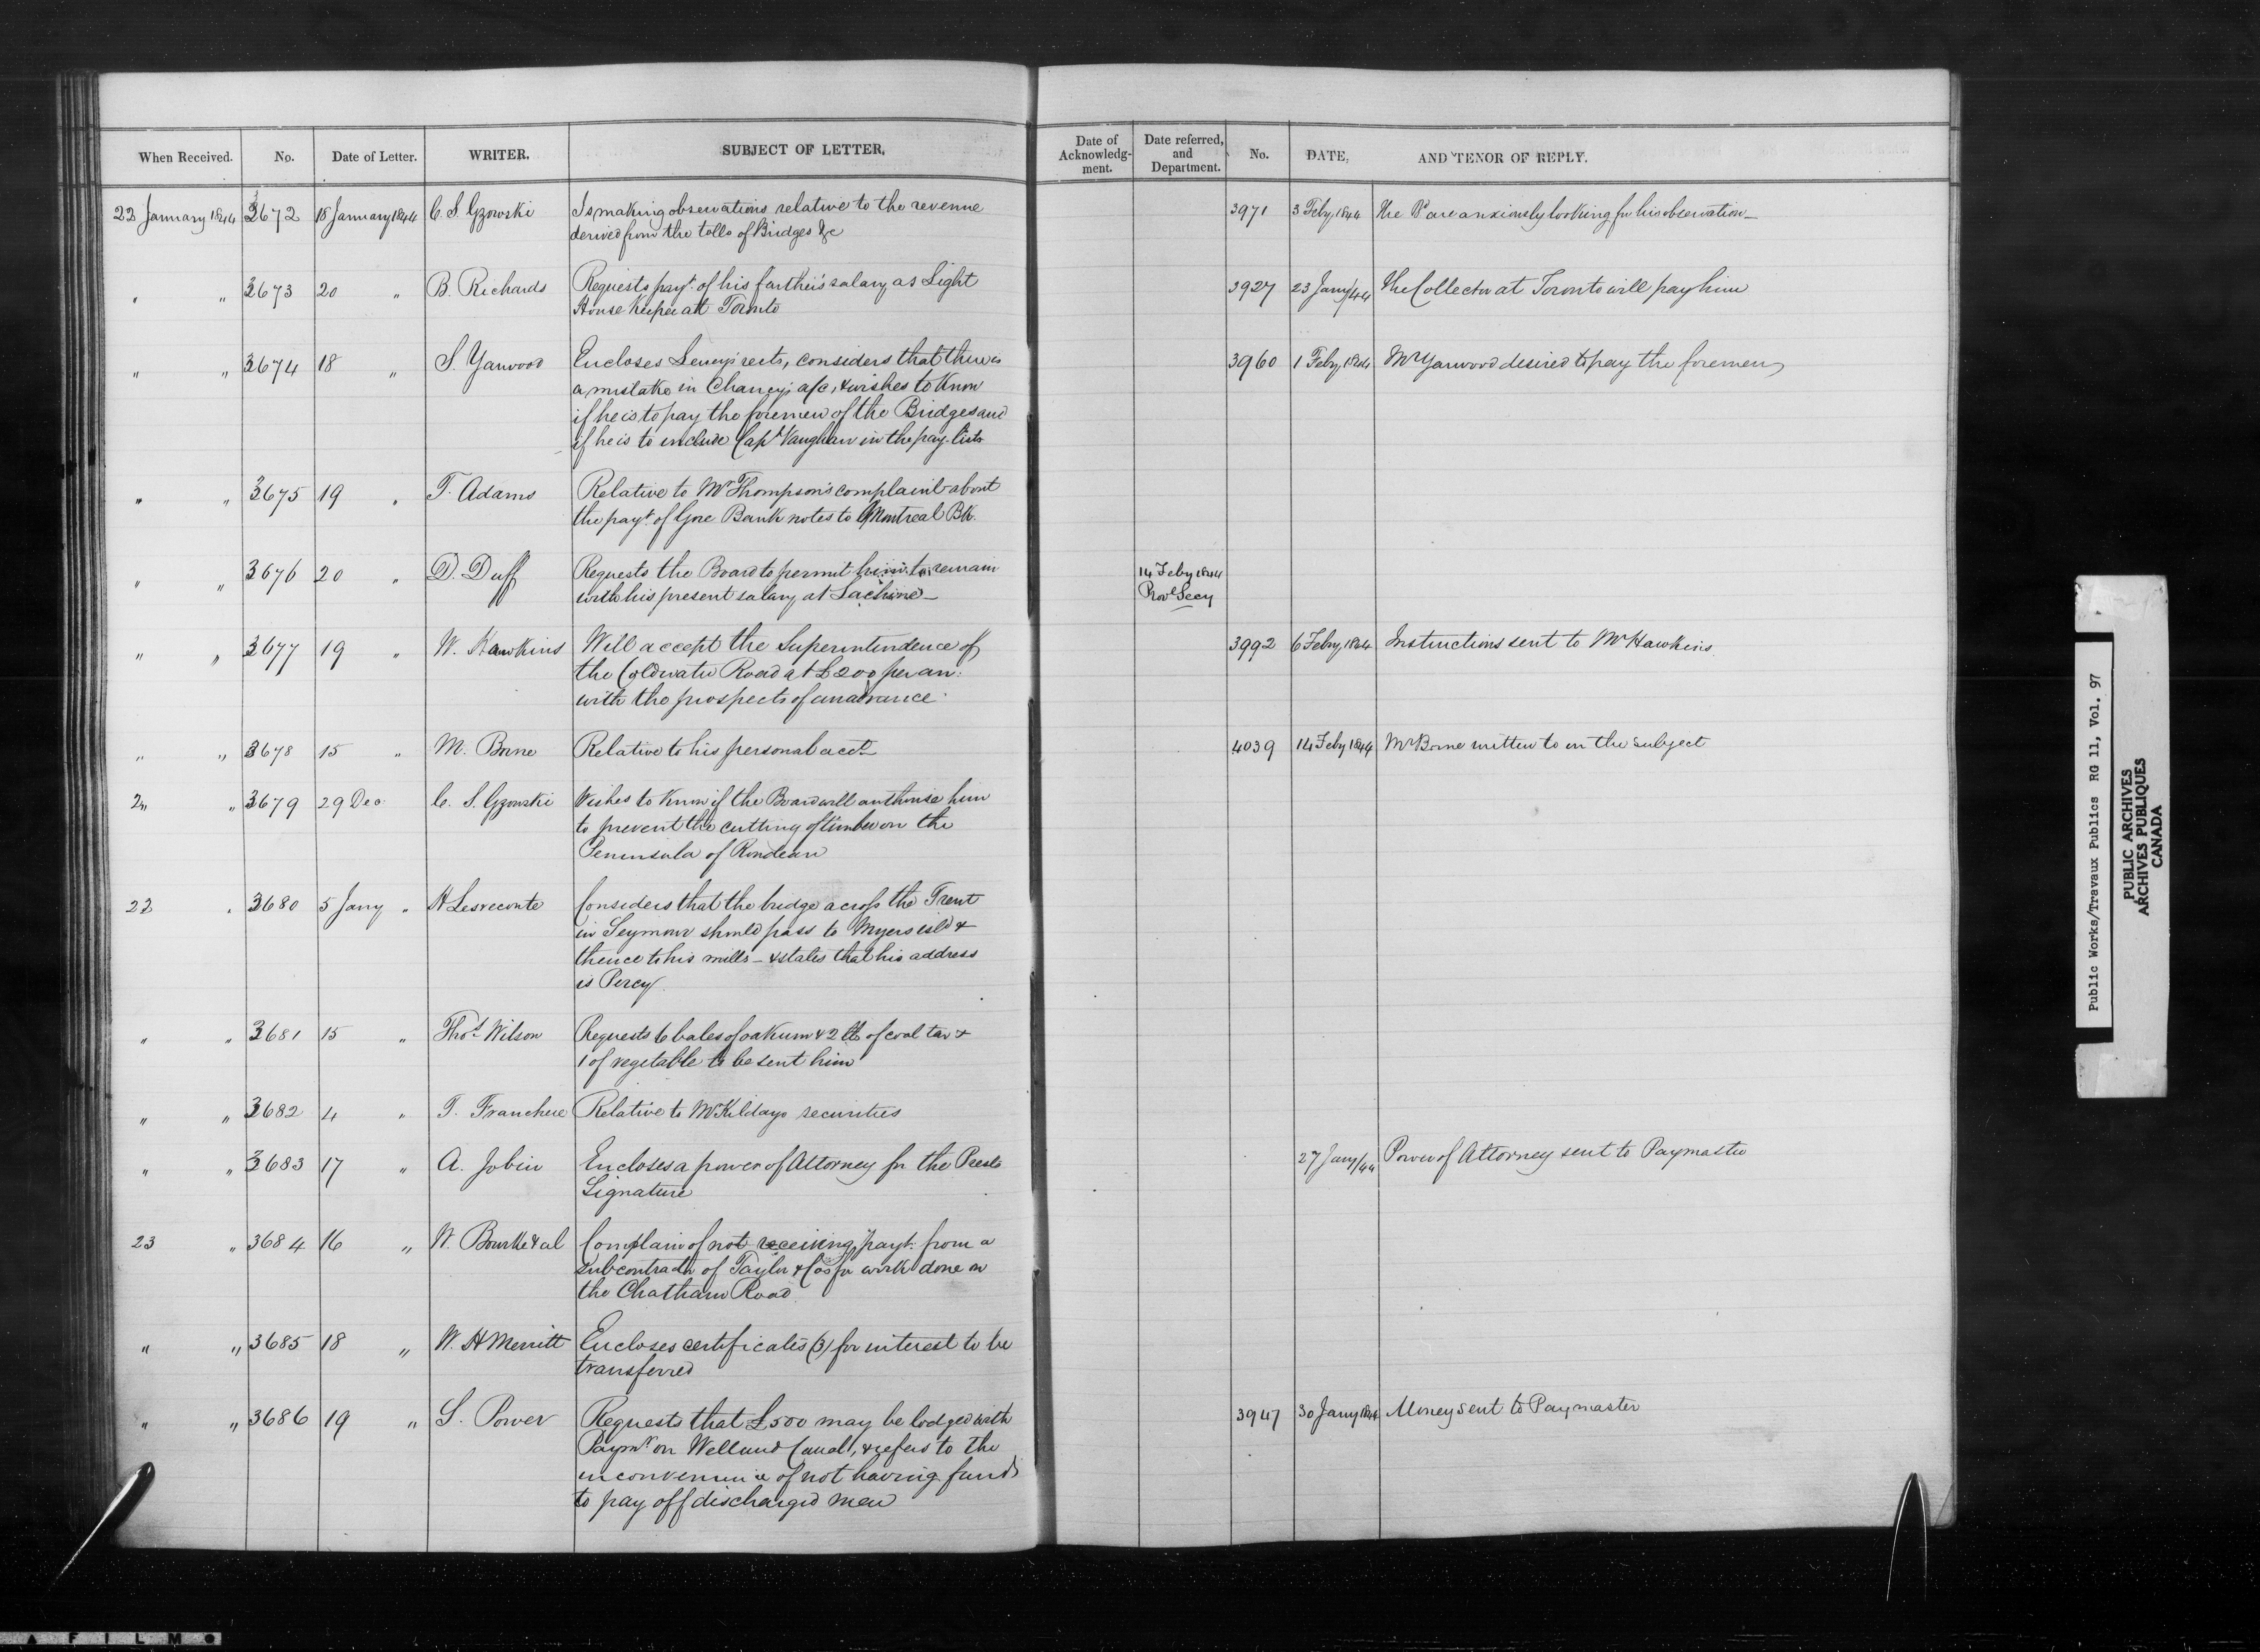 When Received. No. Date of Letter. WRITER. SUBJECT OF LETTER. Date of Acknowledg-ment. Date referred, and Department. No. DATE, AND TENOR OF REPLY.
22 January 1844 3672 18 January 1844 C. S. Gzowski Is making observations relative to the revenue 3971 3 Feby 1844 The Bd are anxiously looking for his observation_
derived from the tolls of Bridges &c
" " 3673 20 " B. Richards Requests payt. of his farther's salary as Light 3927 23 Jany/44 The Collector at Toronto will pay him
House Keeper at Toronto
" " 3674 18 " S. Yarwood Encloses rects, considers that there is 3960 1 Feby 1844 Mr Yarwood desired to pay the foremen
a mistake in Chancy's a/c, & wishes to know
if he is to pay the foremen of the Bridges and
if he is to include Capt Vaughan in the pay lists
" " 3675 19 " T. Adams Relative to Mr Thompson's complaint about
the payt. of Gore Bank notes to Montreal Bk.
" " 3676 20 " D. Duff Requests the Board to permit him to remain 14 Feby 1844
with his present salary at Lachine_ Provl Secy
" " 3677 19 " W. Hawkins Will accept the Superintendence of 3992 6 Feby 1844 Instructions sent to Mr Hawkins.
the Coldwater Road at £200 per an:
with the prospects of an advance.
" " 3678 15 " M. Borne Relative to his personal acct 4039 14 Feby 1844 Mr Borne written to on the subject
2" " 3679 29 Dec. C. S. Gzowski Wishes to know if the Board will authorise him
to prevent the cutting of timber on the
Peninsula of Rondeau
22 " 3680 5 Jany " H Lesveconte Considers that the bridge across the Trent
in Seymour should pass to Myers isld &
thence to his mills _ & states that his address
is Percy.
" " 3681 15 " Thos. Wilson Requests 6 bales of oakum & 2 lb of coal tar &
1 of vegetable to be sent him
" " 3682 4 " T. Franchere Relative to Mr Kildays securities
" " 3683 17 " A. Jobin Encloses a power of Attorney for the Prests 27 Jany/44 Power of Attorney sent to Paymaster
Signature
23 " 3684 16 " W. Bourke & al Complain of not receiving payt. from a
subcontractr of Taylor & Cos for work done on
the Chatham Road
" " 3685 18 " W. H Merritt Encloses certificates (3) for interest to be
transferred
" " 3686 19 " S. Power Requests that £500 may be lodged with 3947 30 Jany 1844 Money sent to Paymaster
Paymr on Welland Canal, & refers to the
inconvenience of not having funds
to pay off discharged men
Public Works/Travaux Publics RG 11, Vol. 97
PUBLIC ARCHIVES
ARCHIVES PUBLIQUES
CANADA
A F I L M